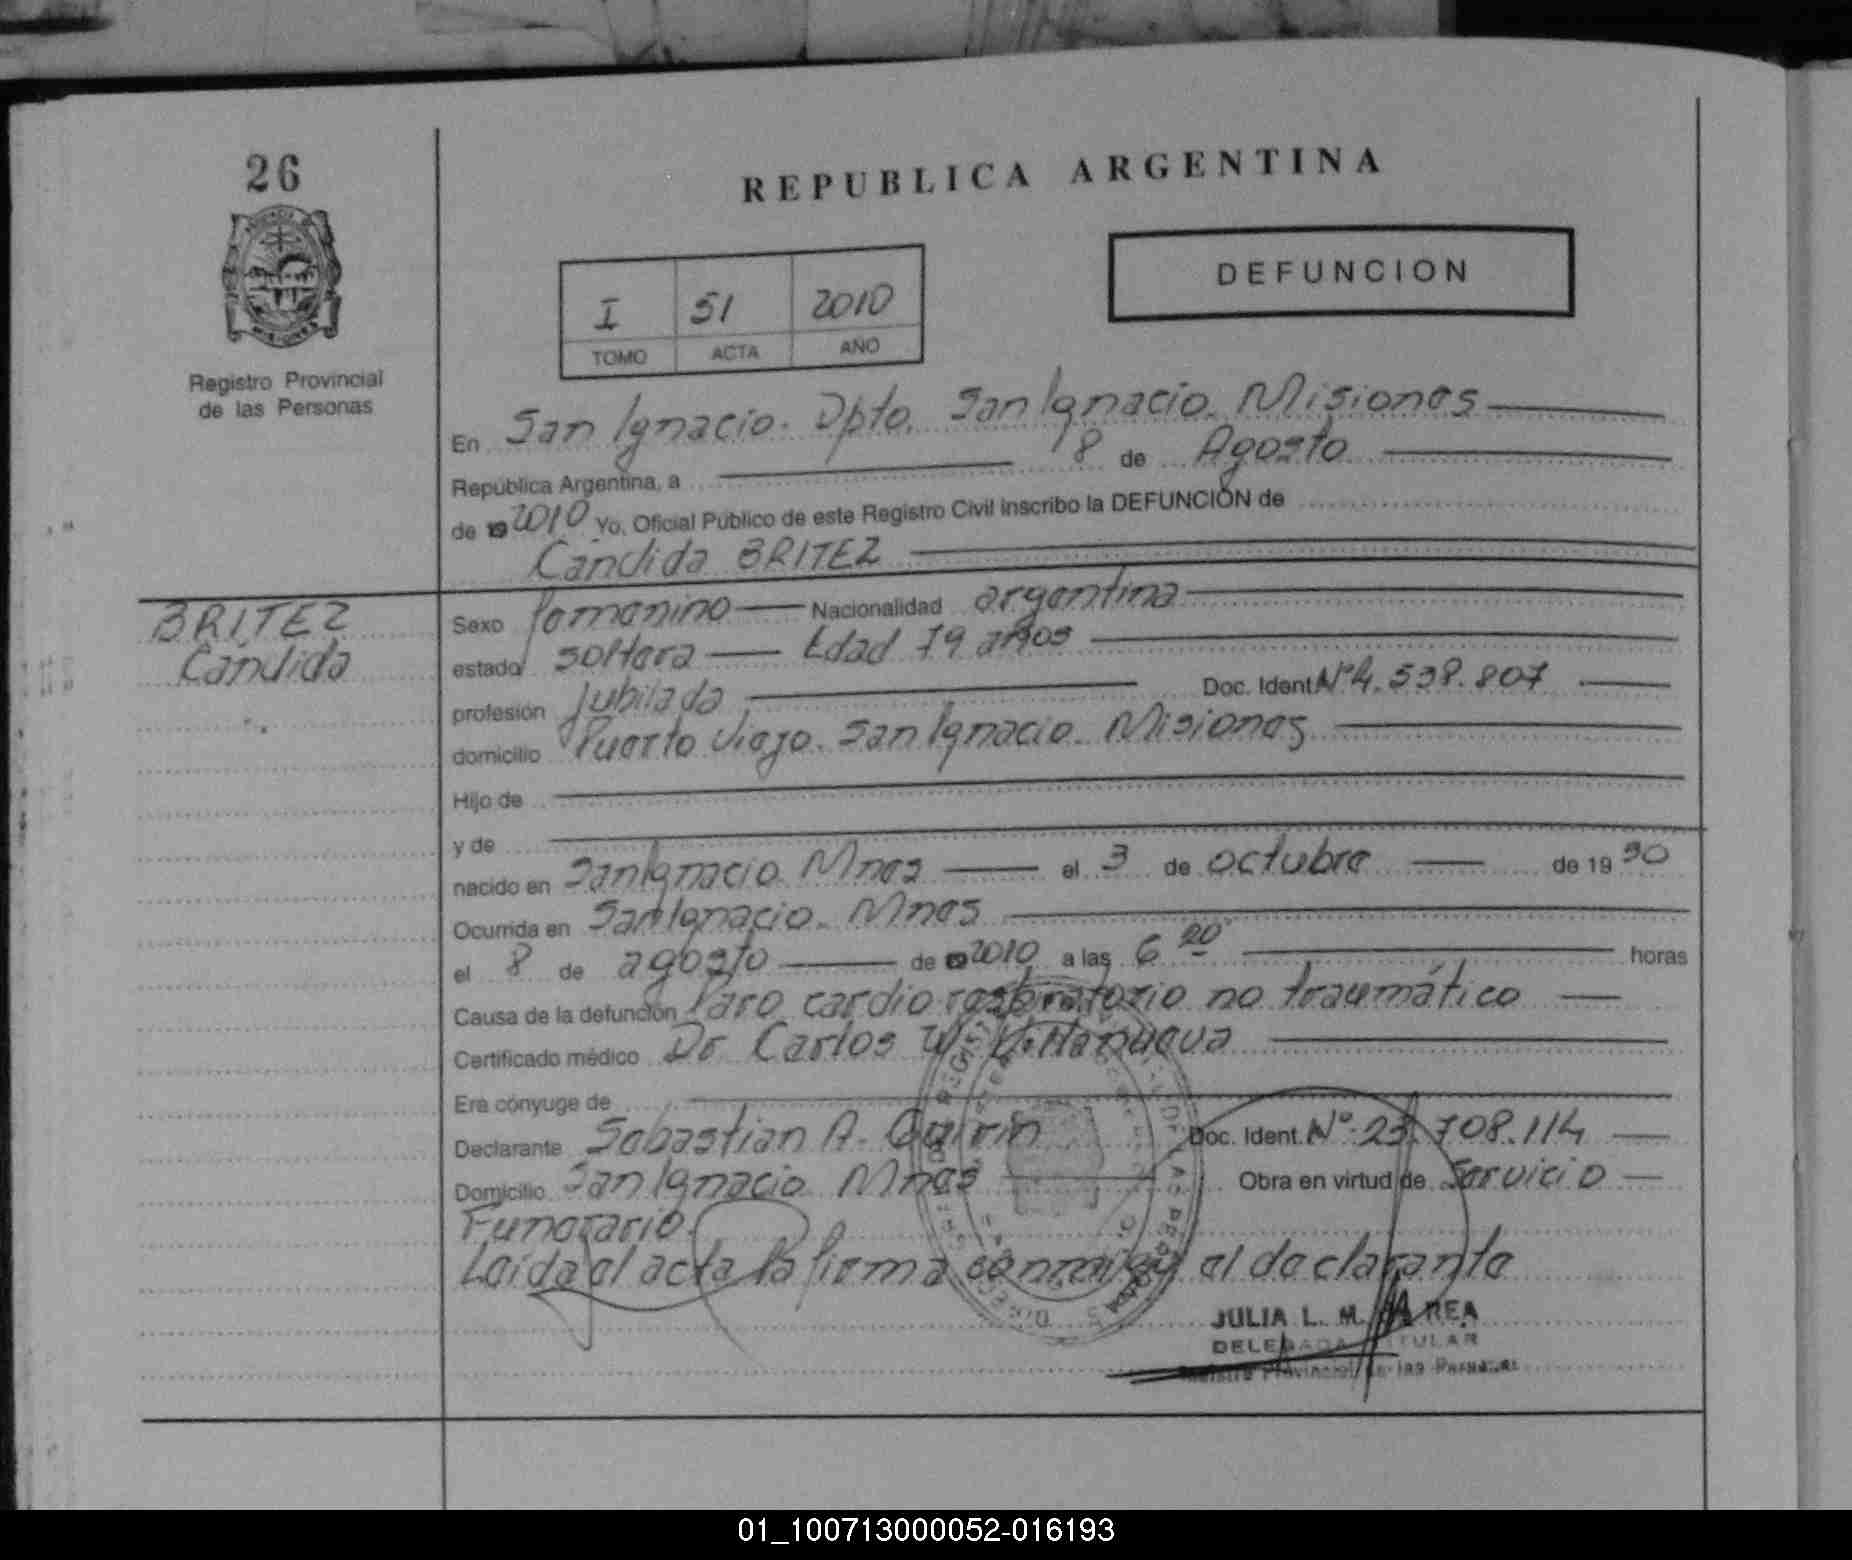 26
REPUBLICA ARGENTINA
DEFUNCION
I 51 2010
TOMO ACTA AÑO
Registro Provincial
de las Personas
En San Ignacio. Dpto. San Ignacio. Misiones
República Argentina, a 18 de Agosto
de 19 2010 Yo, Oficial Público de este Registro Civil inscribo la DEFUNCIÓN de
Cándida BRITEZ
BRITEZ
Cándida
Sexo femenino Nacionalidad argentina
estado soltera Edad 79 años
profesión Jubilada Doc. Ident. Nº 4.538.807
domicilio Puerto Viejo. San Ignacio. Misiones
Hijo de
y de
nacido en San Ignacio Mnes el 3 de octubre de 19 30
Ocurrida en San Ignacio. Mnes
el 8 de agosto de 19 2010 a las 6 20 horas
Causa de la defunción Paro cardio respiratorio no traumático
Certificado médico Dr Carlos W. Villanueva
Era cónyuge de
Declarante Sebastian A. Guirin Doc. Ident. Nº 23.708.114
Domicilio San Ignacio Mnes Obra en virtud de Servicio
Funerario.
Leida el acta la firma conmigo el declarante
JULIA L. M.
DELEGADA TITULAR
Registro Provincial de las Personas
01_100713000052-016193